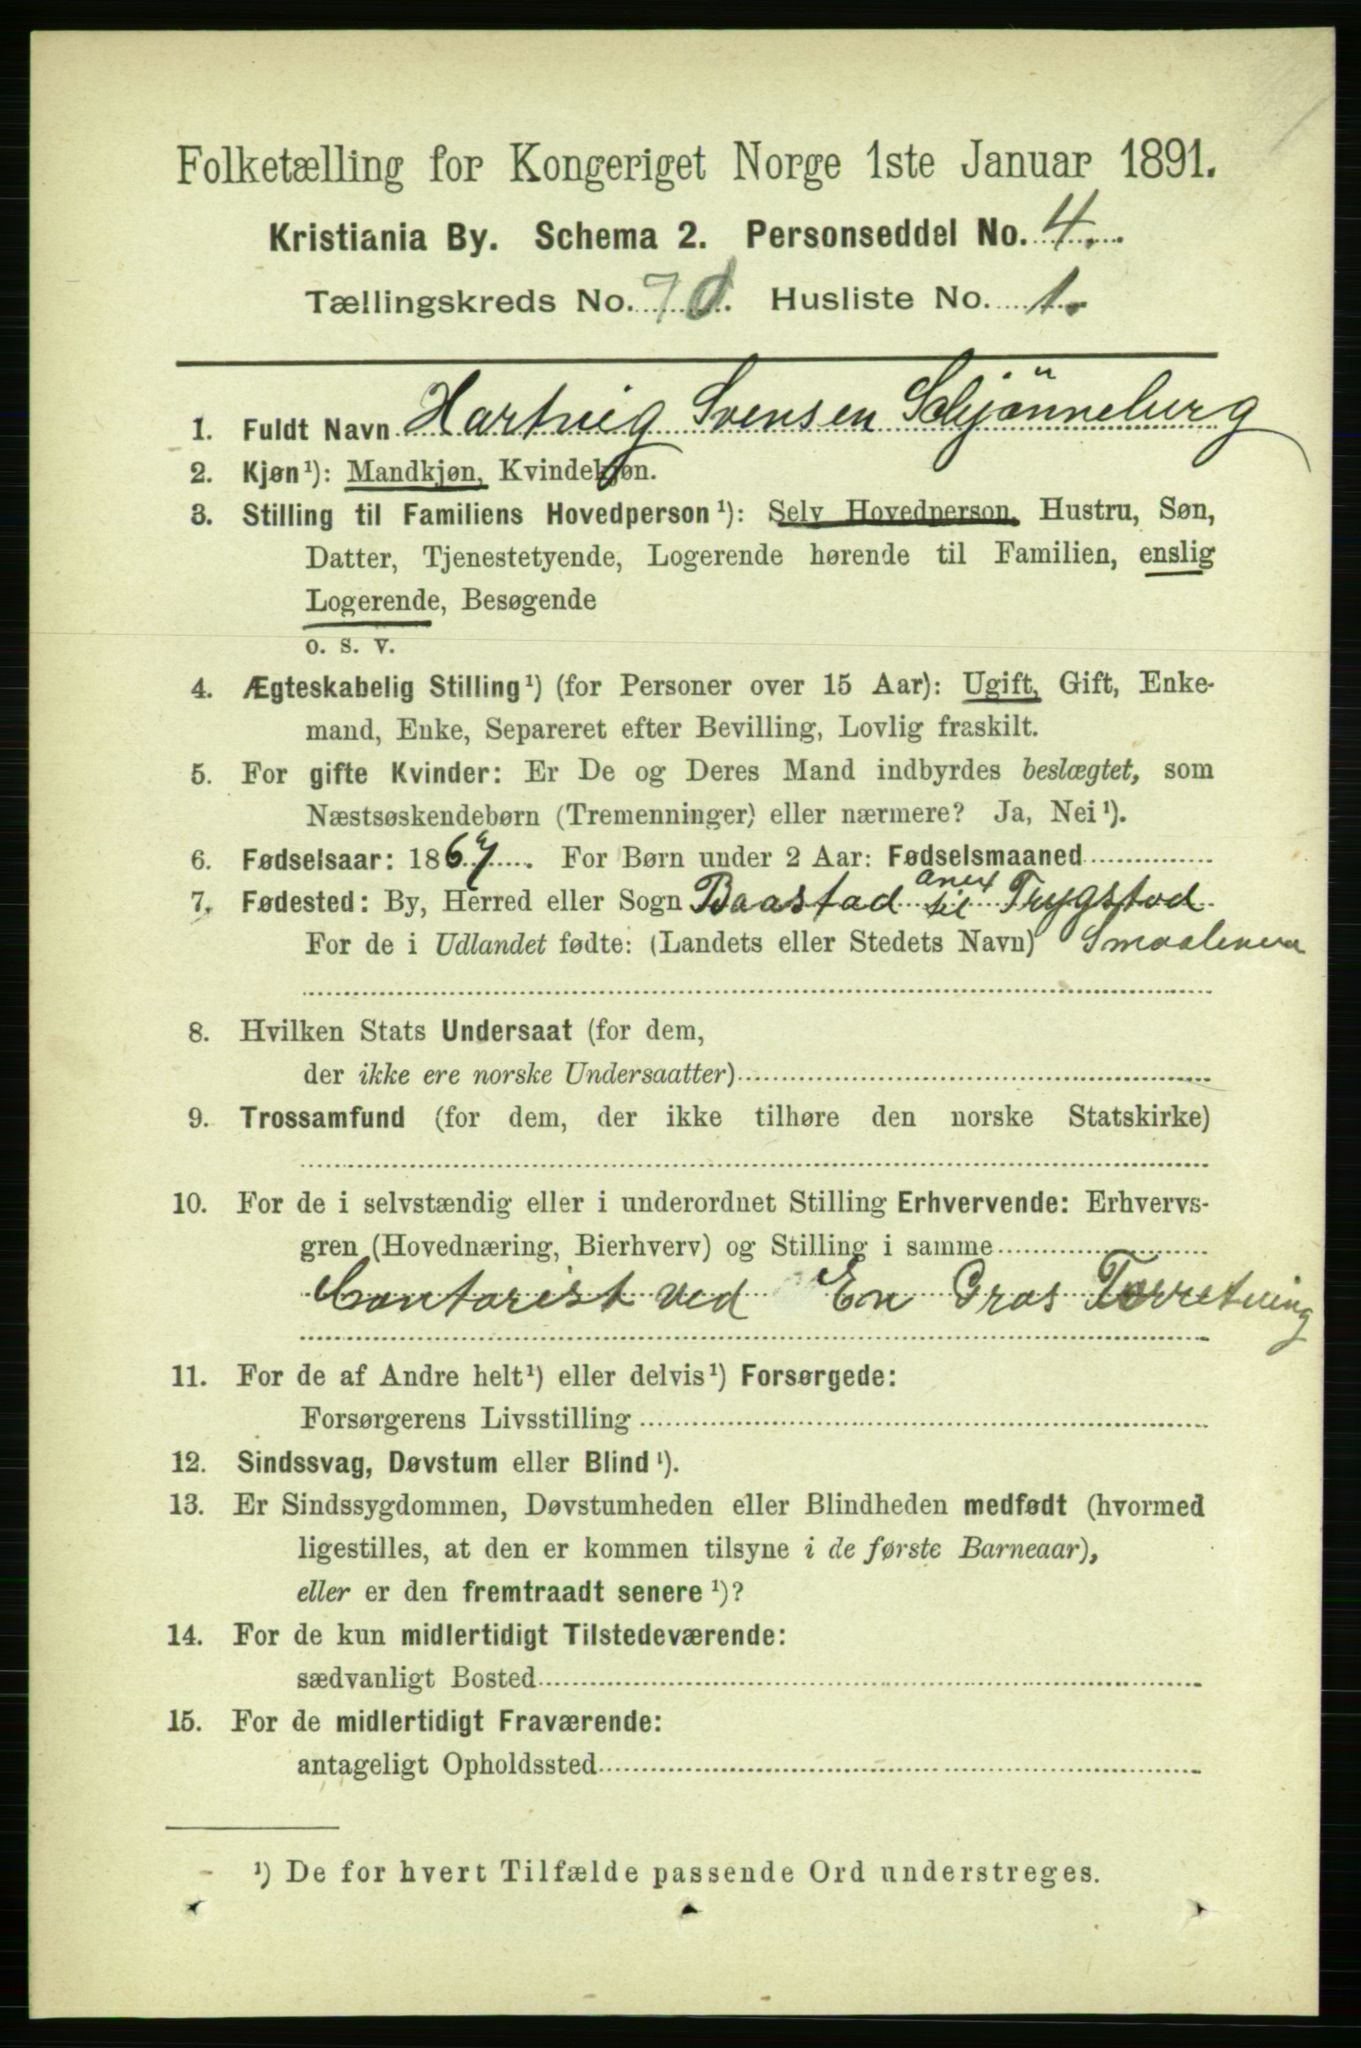 Folketælling for Kongeriget Norge 1ste Januar 1891.
Kristiania By. Schema 2. Personseddel No. 4.
Tællingskreds No. 70. Husliste No. 1.
1. Fuldt Navn Hartvig Svensen Schjönneberg
2. Kjøn¹): Mandkjøn, Kvindekjøn.
3. Stilling til Familiens Hovedperson¹): Selv Hovedperson, Hustru, Søn,
Datter, Tjenestetyende, Logerende hørende til Familien, enslig
Logerende, Besøgende
o. s. v.
4. Ægteskabelig Stilling¹) (for Personer over 15 Aar): Ugift, Gift, Enke-
mand, Enke, Separeret efter Bevilling, Lovlig fraskilt.
5. For gifte Kvinder: Er De og Deres Mand indbyrdes beslægtet, som
Næstsøskendebørn (Tremenninger) eller nærmere? Ja, Nei¹).
6. Fødselsaar: 1867. For Børn under 2 Aar: Fødselsmaaned
7. Fødested: By, Herred eller Sogn Baastad anex til Trygstad
For de i Udlandet fødte: (Landets eller Stedets Navn) Smaalenene
8. Hvilken Stats Undersaat (for dem,
der ikke ere norske Undersaatter)
9. Trossamfund (for dem, der ikke tilhøre den norske Statskirke)
10. For de i selvstændig eller i underordnet Stilling Erhvervende: Erhvervs-
gren (Hovednæring, Bierhverv) og Stilling i samme
Contorist ved En Gros Forretning
11. For de af Andre helt¹) eller delvis¹) Forsørgede:
Forsørgerens Livsstilling
12. Sindssvag, Døvstum eller Blind¹).
13. Er Sindssygdommen, Døvstumheden eller Blindheden medfødt (hvormed
ligestilles, at den er kommen tilsyne i de første Barneaar),
eller er den fremtraadt senere¹)?
14. For de kun midlertidigt Tilstedeværende:
sædvanligt Bosted
15. For de midlertidigt Fraværende:
antageligt Opholdssted
¹) De for hvert Tilfælde passende Ord understreges.